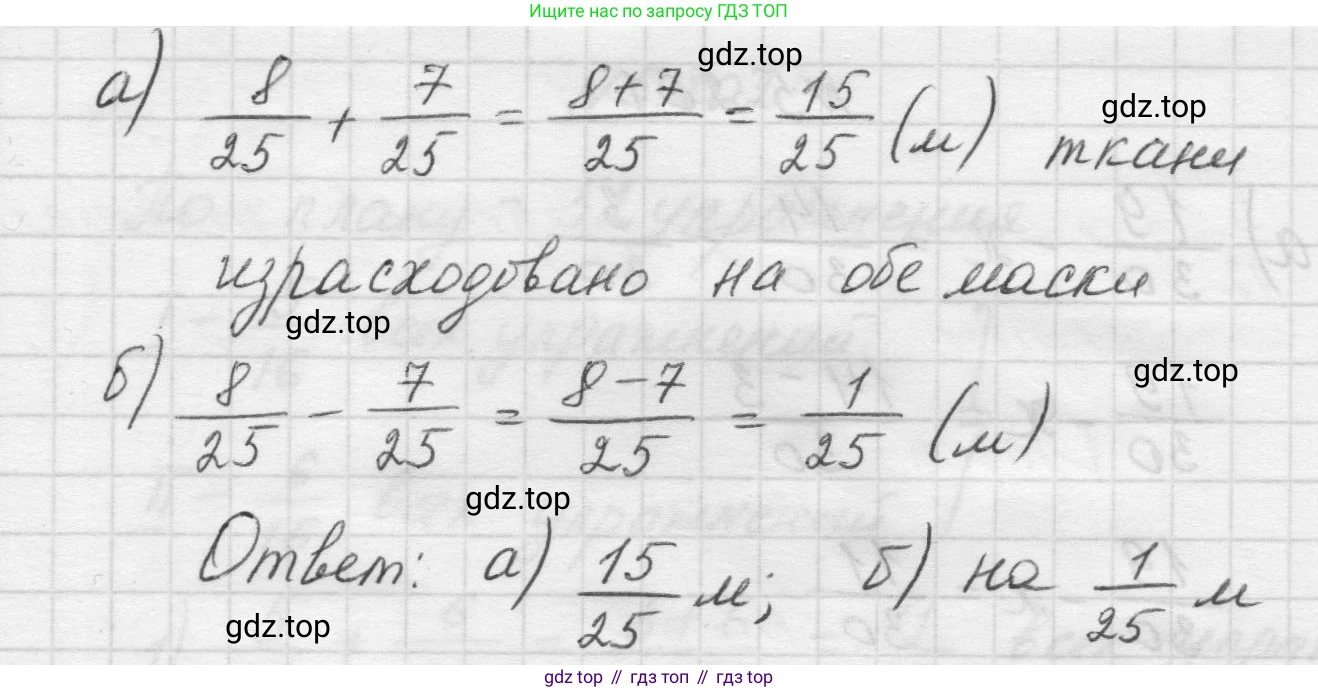 Ищите нас по запросу ГДЗ ТОП
gdz.top
а) 8/25 + 7/25 = 8+7/25 = 15/25 (м) ткани
gdz.top
израсходовано на обе маски
gdz.top
б) 8/25 − 7/25 = 8−7/25 = 1/25 (м)
gdz.top
gdz.top
Ответ: а) 15/25 м; б) на 1/25 м
gdz.top
gdz top // гдз топ // гдз top